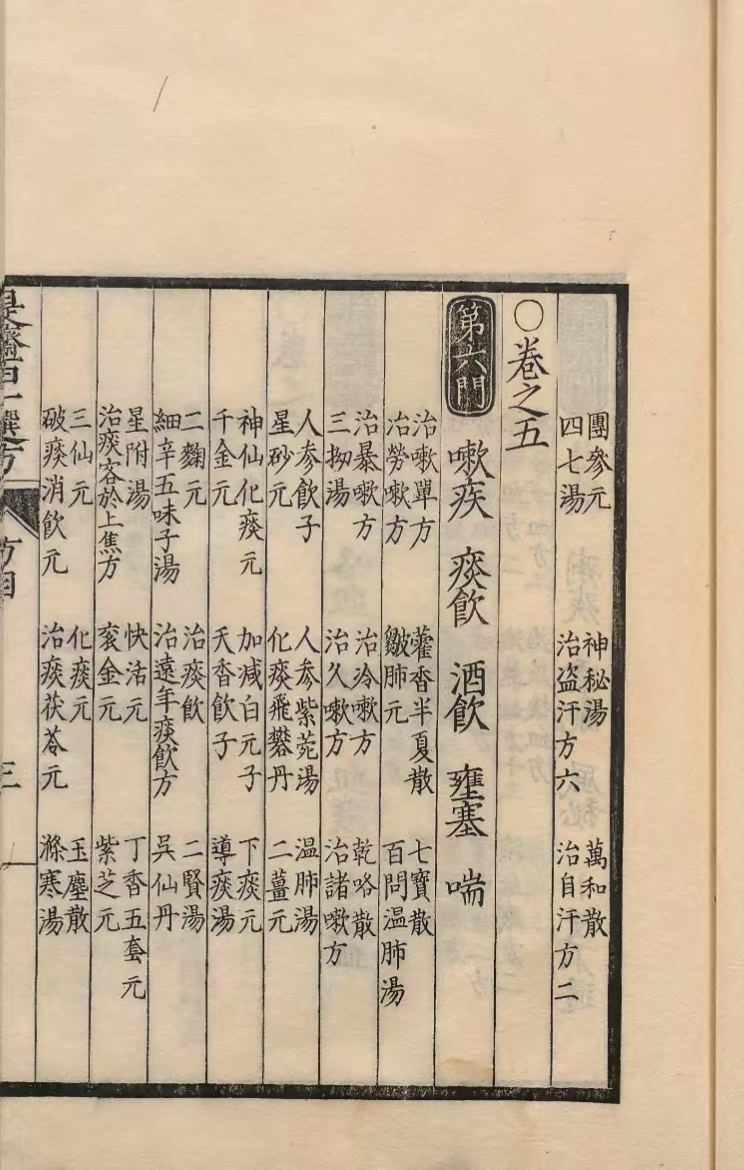 團參元　神秘湯　萬和散
四七湯　治盗汗方六　治自汗方二
〇卷之五
第六門　嗽疾　痰飲　酒飲　壅塞　喘
治嗽單方　藿香半夏散　七寶散
治勞嗽方　皺肺元　百問温肺湯
治暴嗽方　治冷嗽方　乾咯散
三拗湯　治久嗽方　治諸嗽方
人參飲子　人參紫菀湯　温肺湯
星砂元　化痰飛礬丹　二薑元
神仙化痰元　加减白元子　下痰元
千金元　天香飲子　導痰湯
二麴元　治痰飲　二賢湯
細辛五味子湯　治遠年痰飲方　吳仙丹
星附湯　快活元　丁香五套元
治痰客於上焦方　衮金元　紫芝元
三仙元　化痰元　玉塵散
破痰消飲元　治痰茯苓元　滌寒湯
是齋百一選方　方目　三